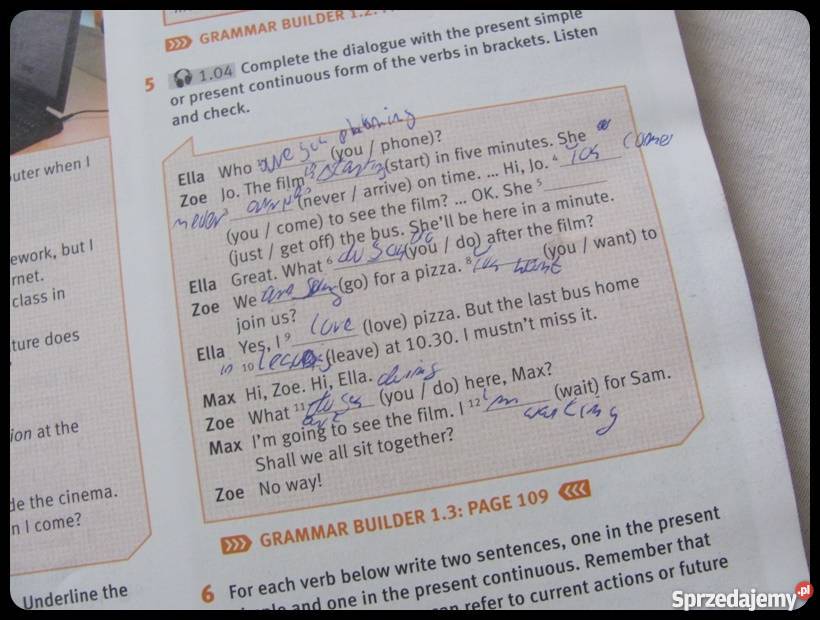 GRAMMAR BUILDER 1.2:
5 1.04 Complete the dialogue with the present simple
or present continuous form of the verbs in brackets. Listen
and check.
Ella Who are you phoning (you / phone)?
Zoe Jo. The film (start) in five minutes. She
never (never / arrive) on time. ... Hi, Jo. 4 comes
(you / come) to see the film? ... OK. She 5
(just / get off) the bus. She'll be here in a minute.
Ella Great. What 6 (you / do) after the film?
Zoe We are (go) for a pizza. 8 want (you / want) to
join us?
Ella Yes, I 9 love (love) pizza. But the last bus home
10 (leave) at 10.30. I mustn't miss it.
Max Hi, Zoe. Hi, Ella.
doing
Zoe What 11 (you / do) here, Max?
Max I'm going to see the film. I 12 'm waiting (wait) for Sam.
Shall we all sit together?
Zoe No way!
GRAMMAR BUILDER 1.3: PAGE 109
6 For each verb below write two sentences, one in the present
and one in the present continuous. Remember that
refer to current actions or future
uter when I
ework, but I
rnet.
class in
ture does
ion at the
de the cinema.
n I come?
Underline the
Sprzedajemy.pl